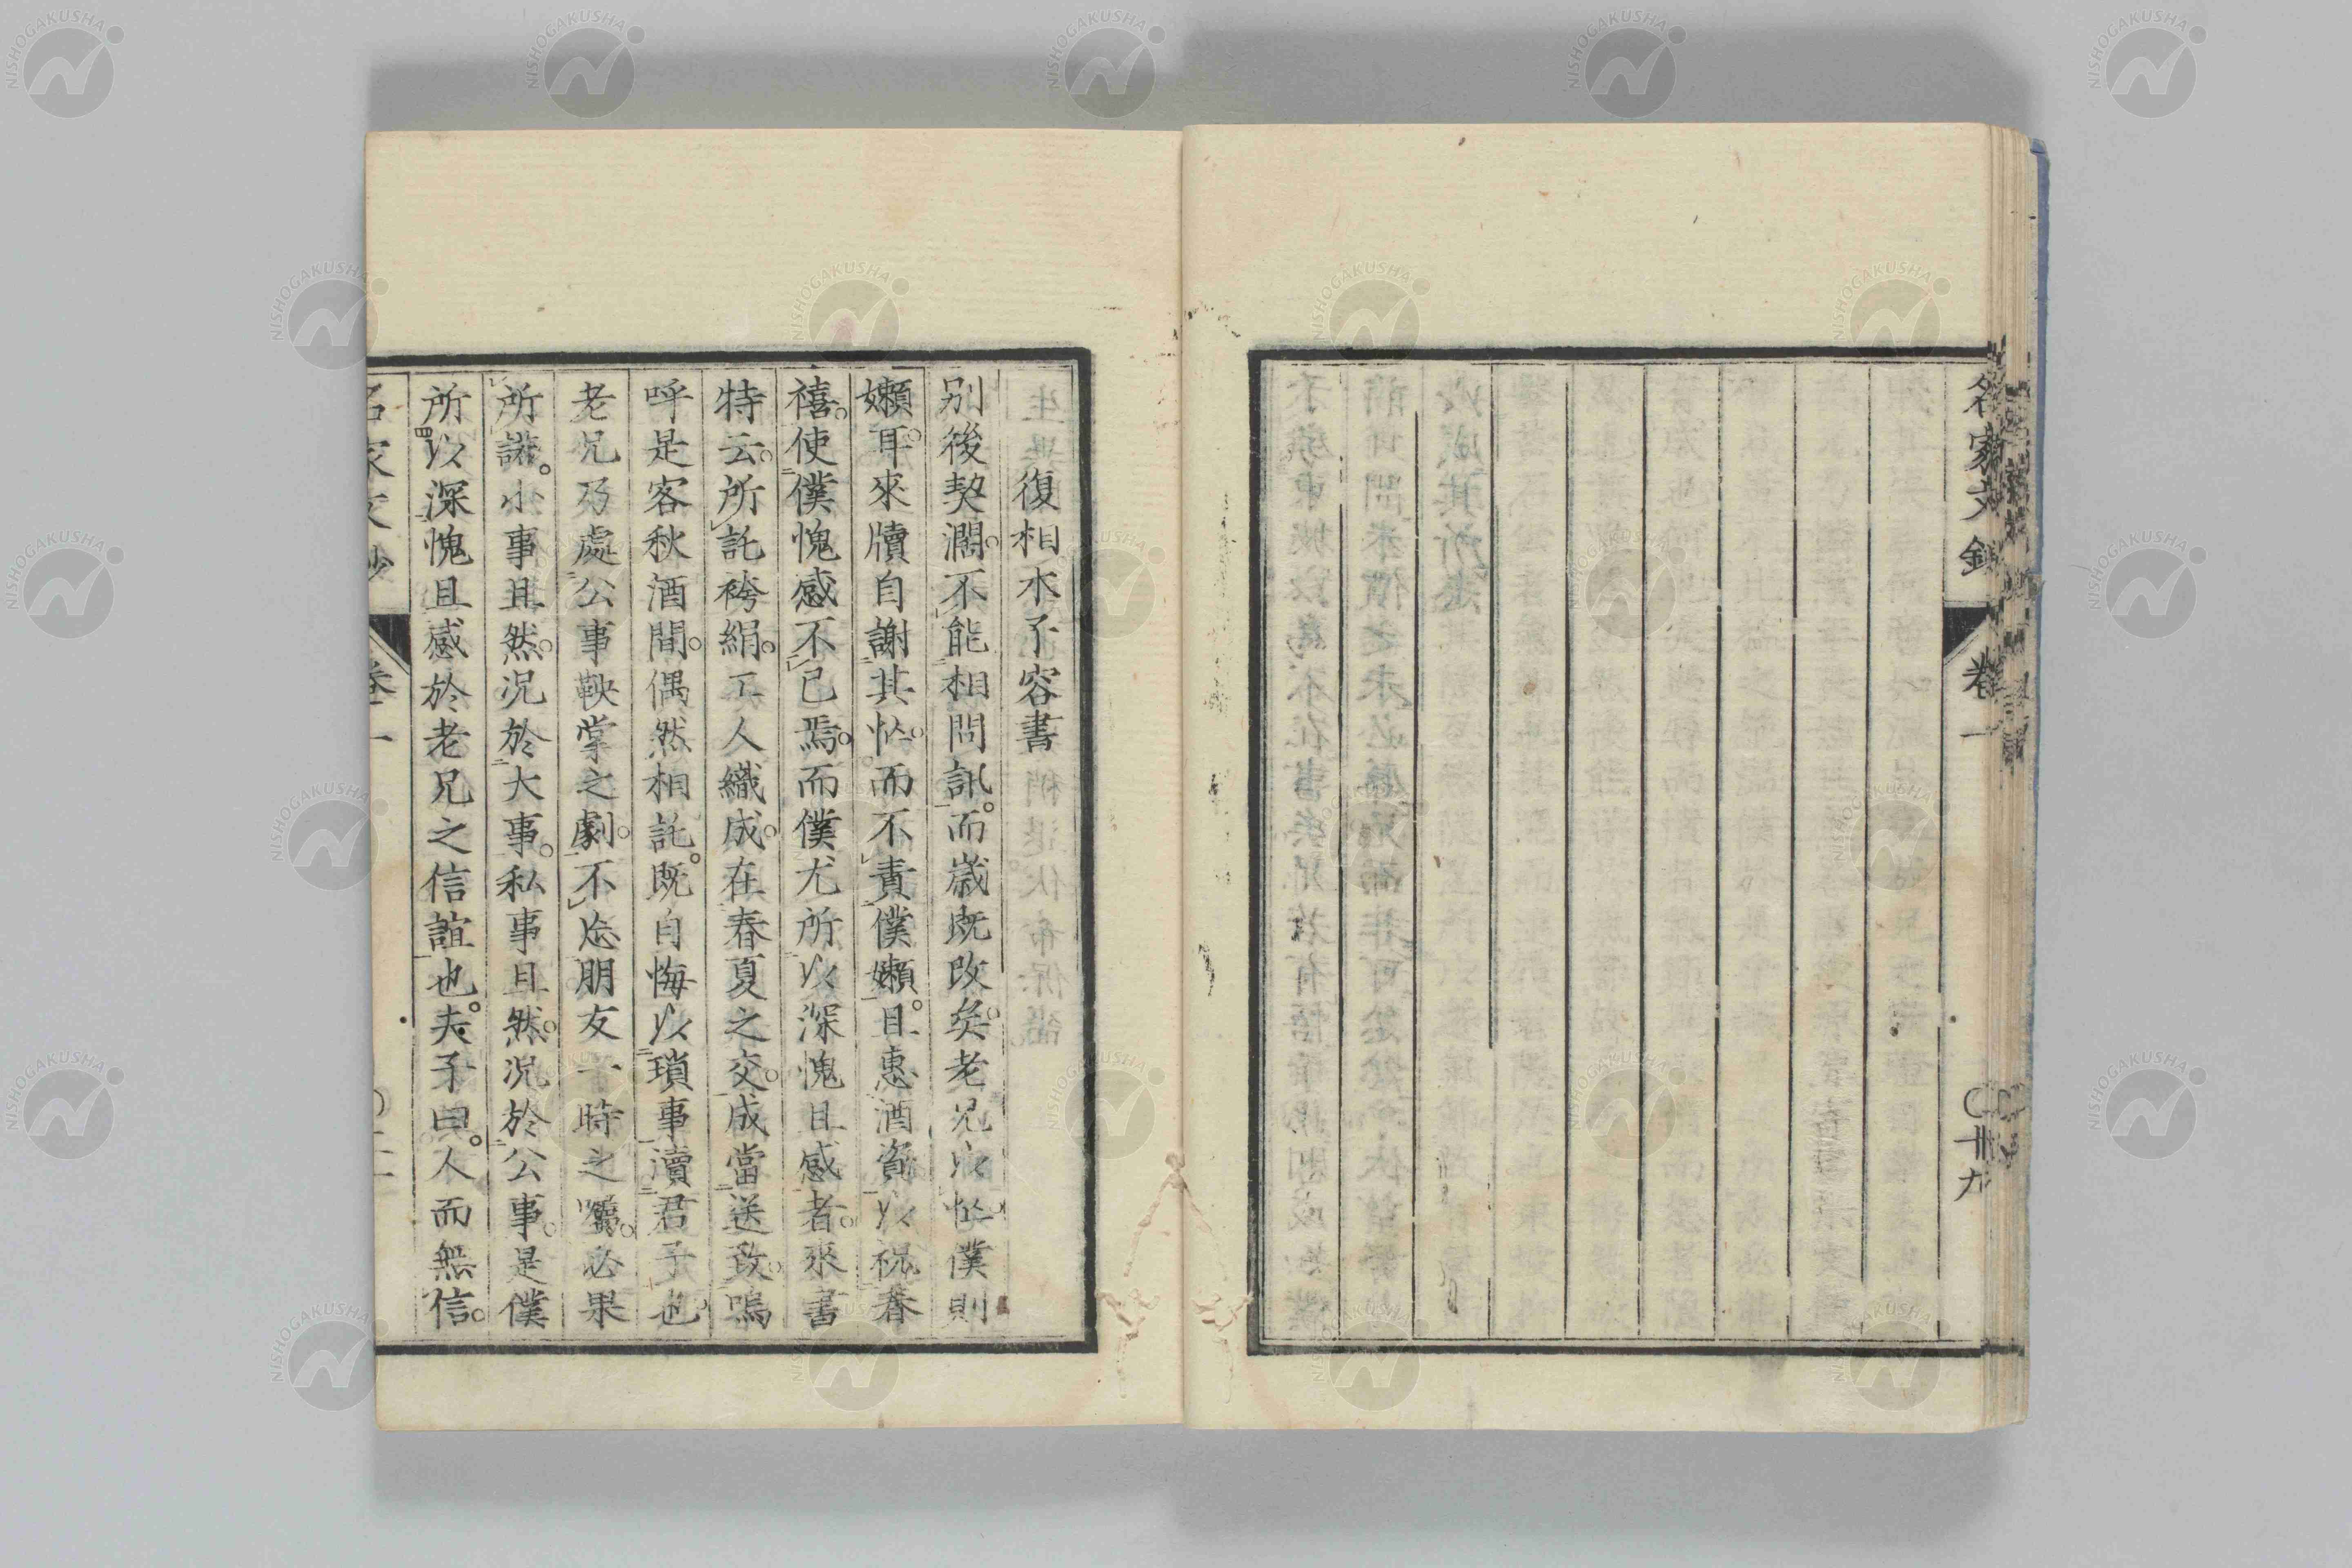 名家文鈔 卷一 〇廿九
復相木子容書
別後契濶。不能相問訊。而歲既改矣。老兄以恠僕則
嬾耳。來牘自謝其恠。而不責僕嬾。且惠酒資以祝春
禧。使僕愧感不已焉。而僕尤所以深愧且感者。來書
特云。所託袴絹。工人織成。在春夏之交。成當送致。嗚
呼是客秋酒間。偶然相託。既自悔以瑣事瀆君子也。
老兄乃處公事鞅掌之劇。不忘朋友一時之囑。必果
所諾。小事且然。況於大事。私事且然。況於公事。是僕
所以深愧且感於老兄之信誼也。夫子曰。人而無信。
名家文鈔 卷一
NISHOGAKUSHA